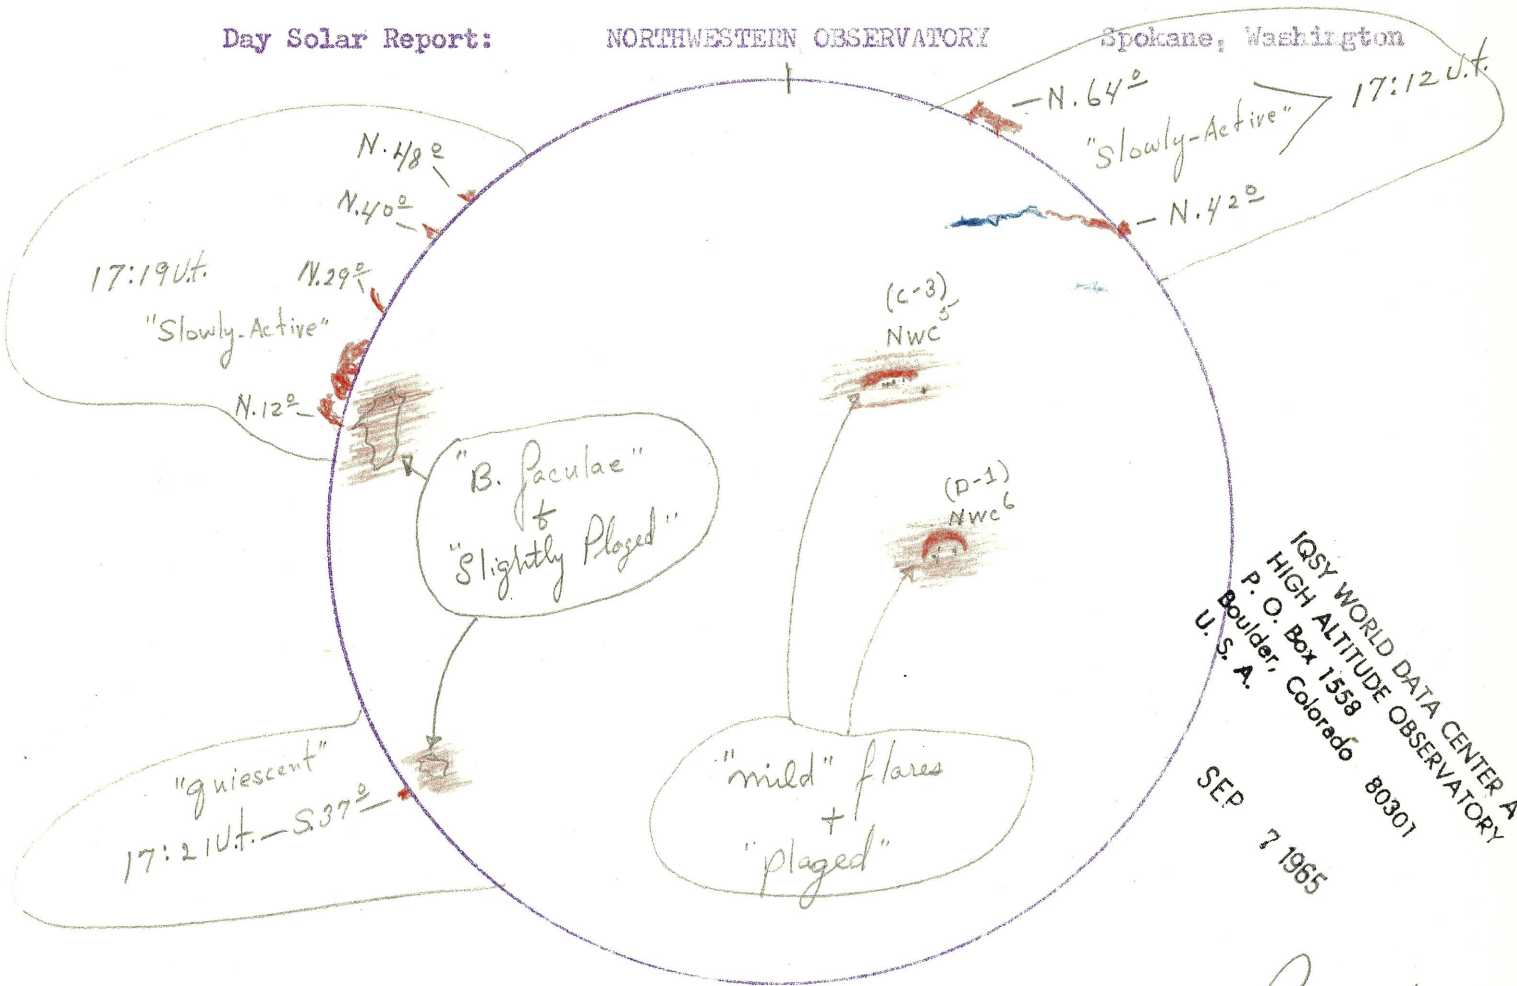 Day Solar Report: NORTHWESTERN OBSERVATORY Spokane, Washington
N.64º
"Slowly-Active"
17:12 U.t.
N.42º
N.48º
N.40º
17:19 U.t.
N.29º
"Slowly-Active"
N.12º
(C-3)
NWC5
"B. faculae"
+
"Slightly Plaged"
(D-1)
NWC6
"quiescent"
17:21 U.t. — S.37º
"mild" flares
+
"plaged"
IQSY WORLD DATA CENTER A
HIGH ALTITUDE OBSERVATORY
P. O. Box 1558
Boulder, Colorado 80301
U. S. A.
SEP 7 1965